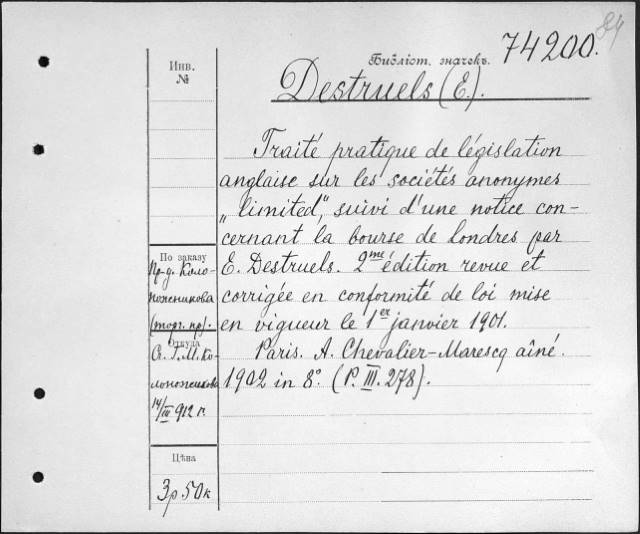 84
Библіот. значекъ. 74200.
Инв.
№
Destruels (E.).
Traité pratique de législation
anglaise sur les sociétés anonymes
„limited", suivi d'une notice con-
cernant la bourse de londres par
E. Destruels. 2me édition revue et
corrigée en conformité de loi mise
en vigueur le 1er janvier 1901.
Paris. A. Chevalier-Marescq aîné.
1902 in 8°. (P. III. 278).
По заказу
Пр-д. Коло-
ножникова
(торг. пр).
Откуда
Ст. Г. М. Ко-
лоножникова
14/III 912 г
Цѣна
3р. 50к